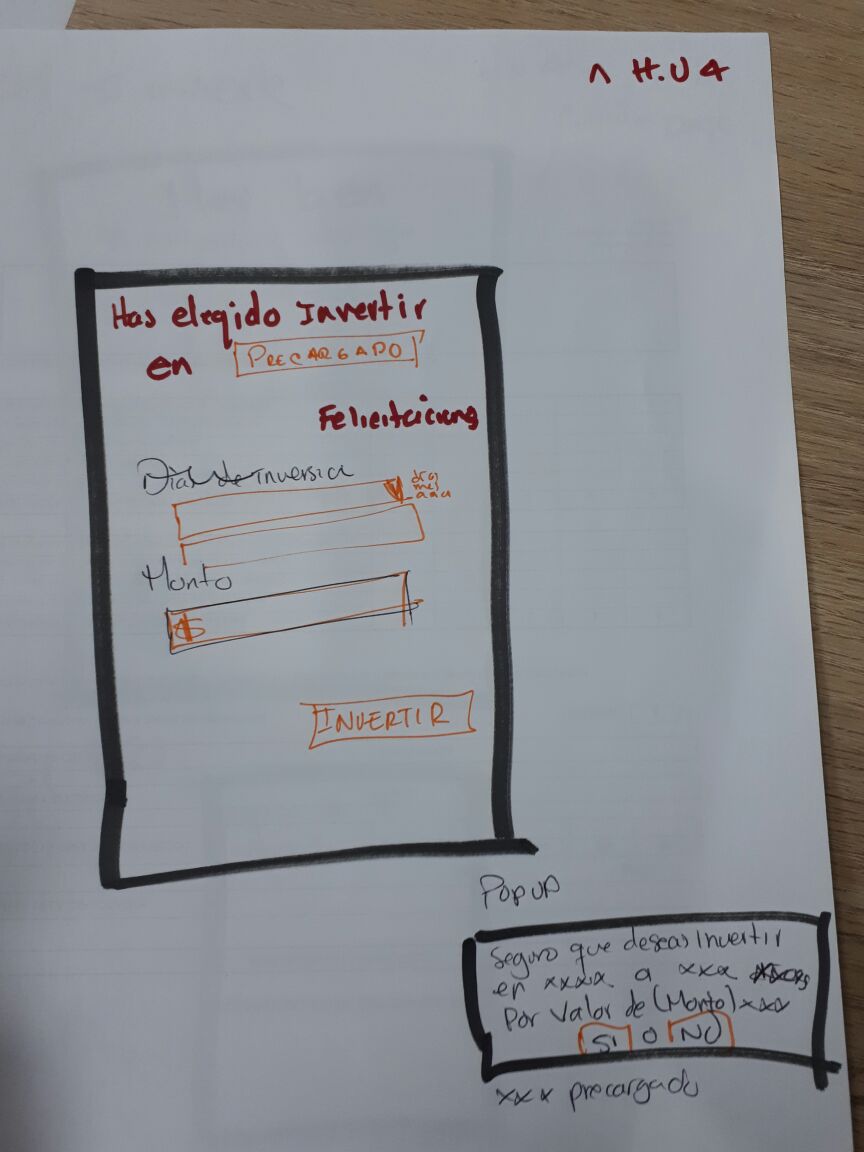 ^ H.U 4
Has elegido Invertir
en PRECARGADO
Dias de inversion
dias
mes
Monto
$
INVERTIR
PopUP
Seguro que deseas Invertir
en xxxx a xxx
Por Valor de (Monto) xxx
SI O NO
xxx precargado